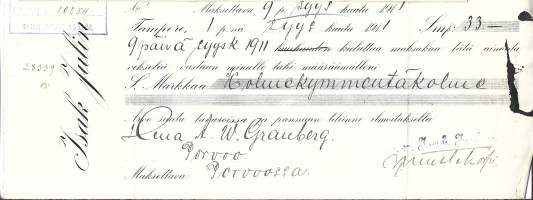 10254
N:o Maksettava 9 p. Syys kuuta 1911
Tampere, 1 p:nä Syys kuuta 1911 Smp: 33.—
9 päivä syysk 1911 kuukauden kuluttua maksakaa tätä ainoata
vekseliä vastaan minulle tahi määräämälleni
S. Markkaa Kolmekymmentäkolme
Arvo saatu tavaroissa ja pannaan tiliinne ilmoituksetta
28339
A. W. Granberg.
Porvoo
Maksettava Porvoossa.
Isak Julin